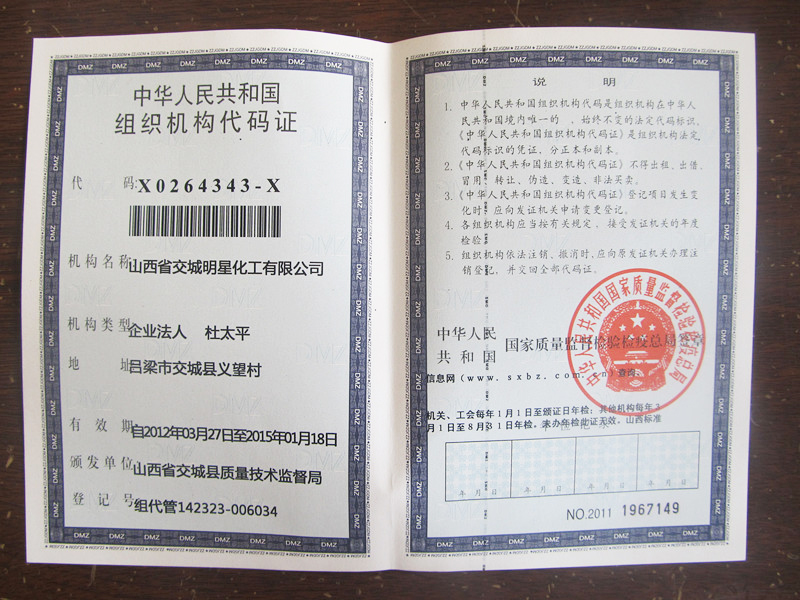 中华人民共和国
组织机构代码证
代 码:X0264343-X
机构名称 山西省交城明星化工有限公司
机构类型 企业法人 杜太平
地 址 吕梁市交城县义望村
有 效 期 自2012年03月27日至2015年01月18日
颁发单位 山西省交城县质量技术监督局
登 记 号 组代管142323-006034
说 明
1. 中华人民共和国组织机构代码是组织机构在中华人
民共和国境内唯一的、始终不变的法定代码标识,
《中华人民共和国组织机构代码证》是组织机构法定
代码标识的凭证,分正本和副本。
2.《中华人民共和国组织机构代码证》不得出租、出借、
冒用、转让、伪造、变造、非法买卖。
3.《中华人民共和国组织机构代码证》登记项目发生变
化时,应向发证机关申请变更登记。
4. 各组织机构应当按有关规定,接受发证机关的年度
检验。
5. 组织机构依法注销、撤消时,应向原发证机关办理注
销登记,并交回全部代码证。
中华人民
共和国 国家质量监督检验检疫总局签章
中华人民共和国国家质量监督检验检疫总局
信息网(www.sxbz.com.cn)查询。
机关、工会每年1月1日至颁证日年检;其他机构每年3
月1日至8月31日年检。未办年检此证无效。山西标准
年 月 日 年 月 日 年 月 日 年 月 日
NO.2011 1967149